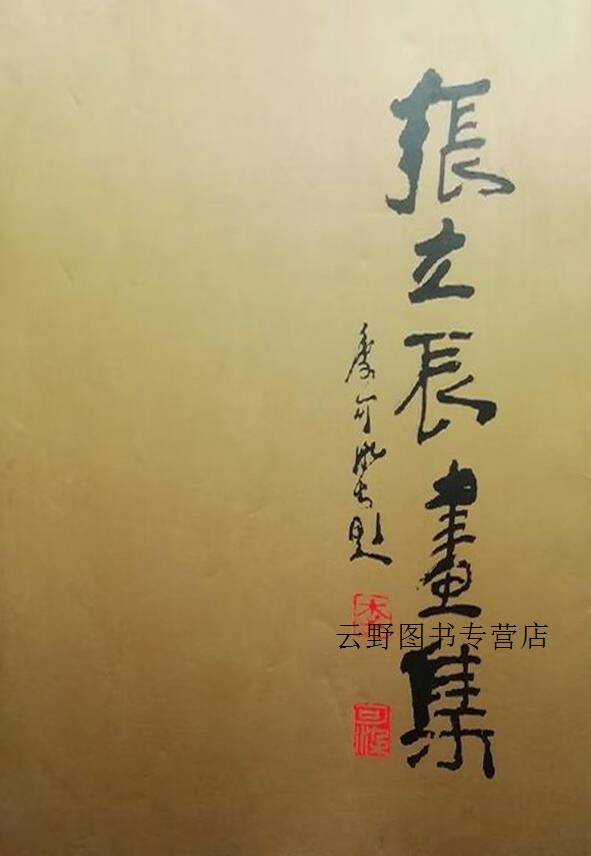 張立辰畫集
李可染題
云野图书专营店
可染